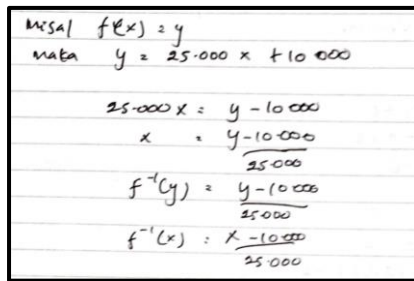 misal f(x) = y
maka y = 25.000 x + 10 000
25.000 x = y - 10 000
x = y - 10.000
25.000
f⁻¹(y) = y - 10 000
25.000
f⁻¹(x) : x - 10 000
25.000